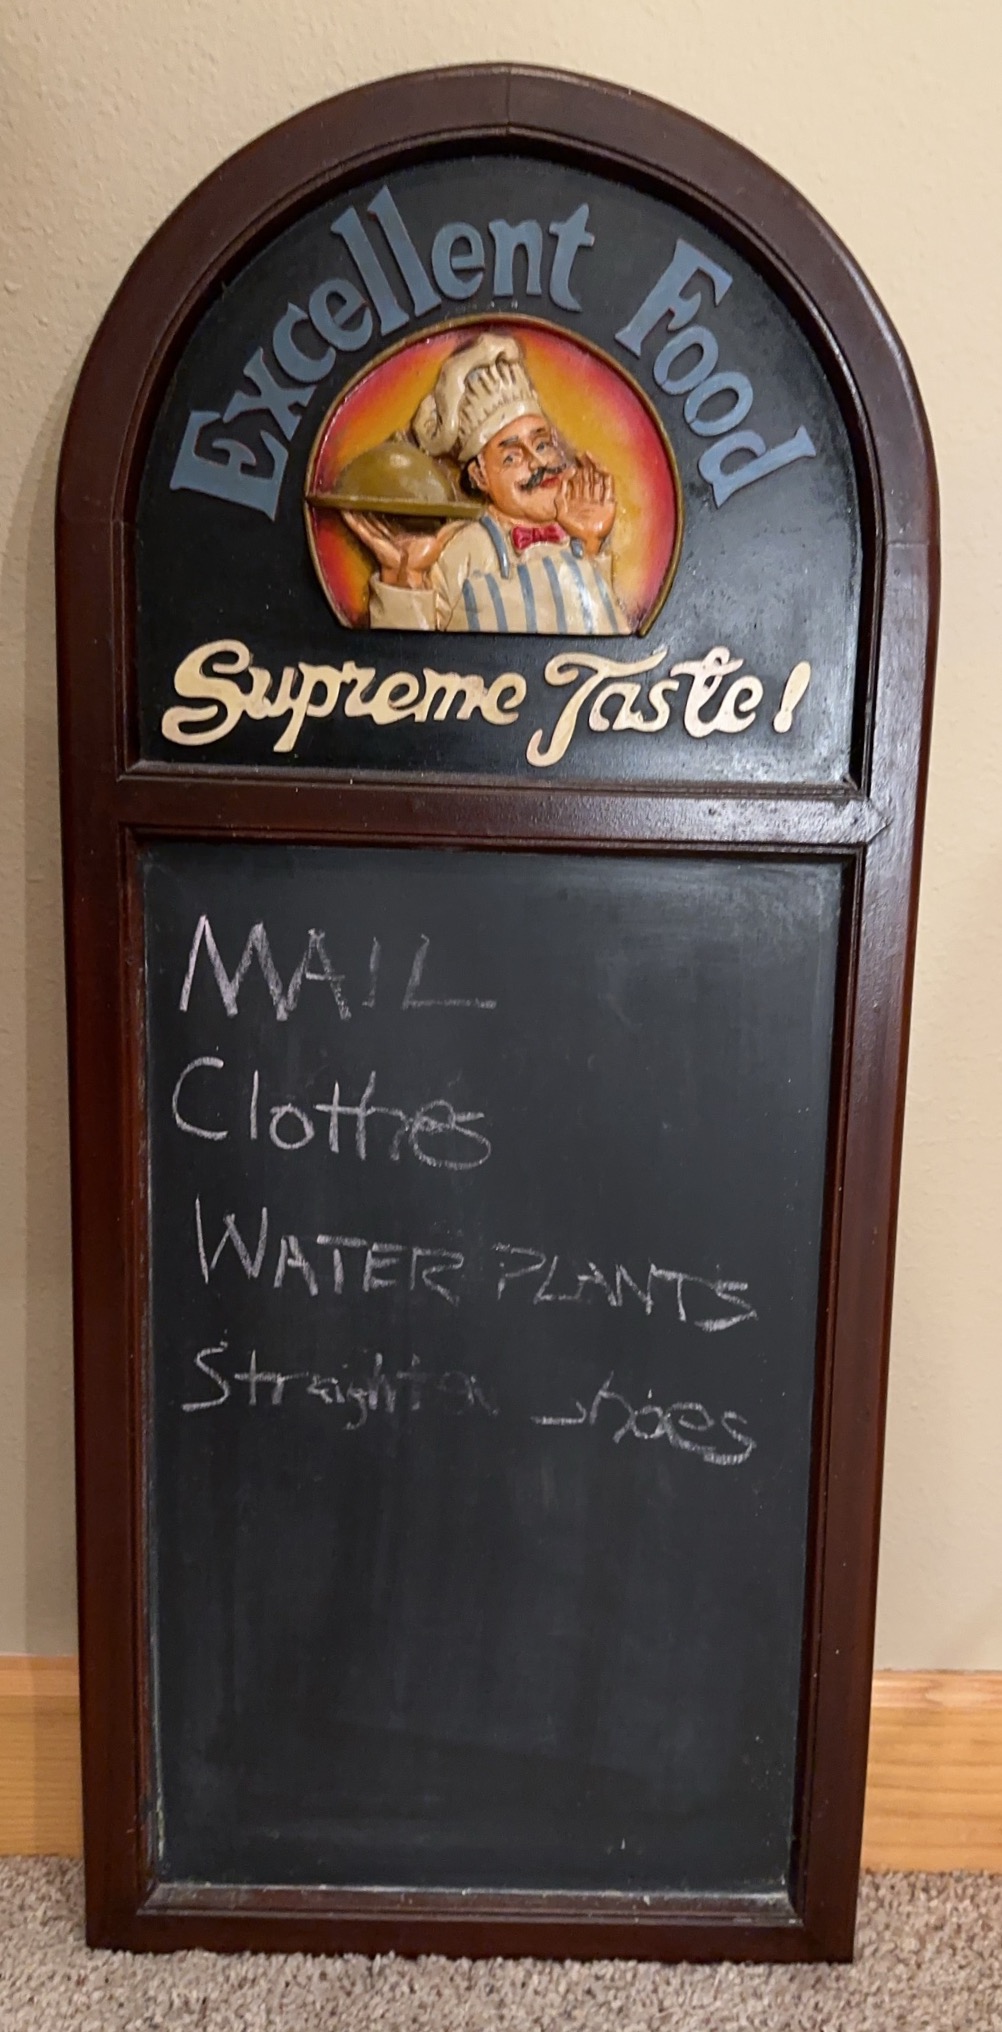 Excellent Food
Supreme Taste!
MAIL
Clothes
WATER PLANTS
Straighten shoes